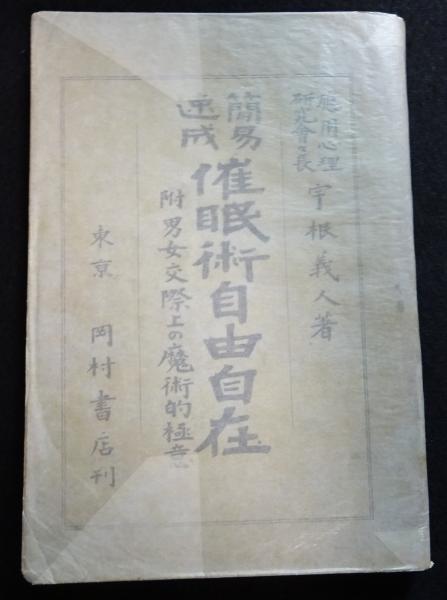 應用心理
研究會々長
宇根義人著
簡易
速成
催眠術自由自在
附男女交際上の魔術的極意
東京 岡村書店刊